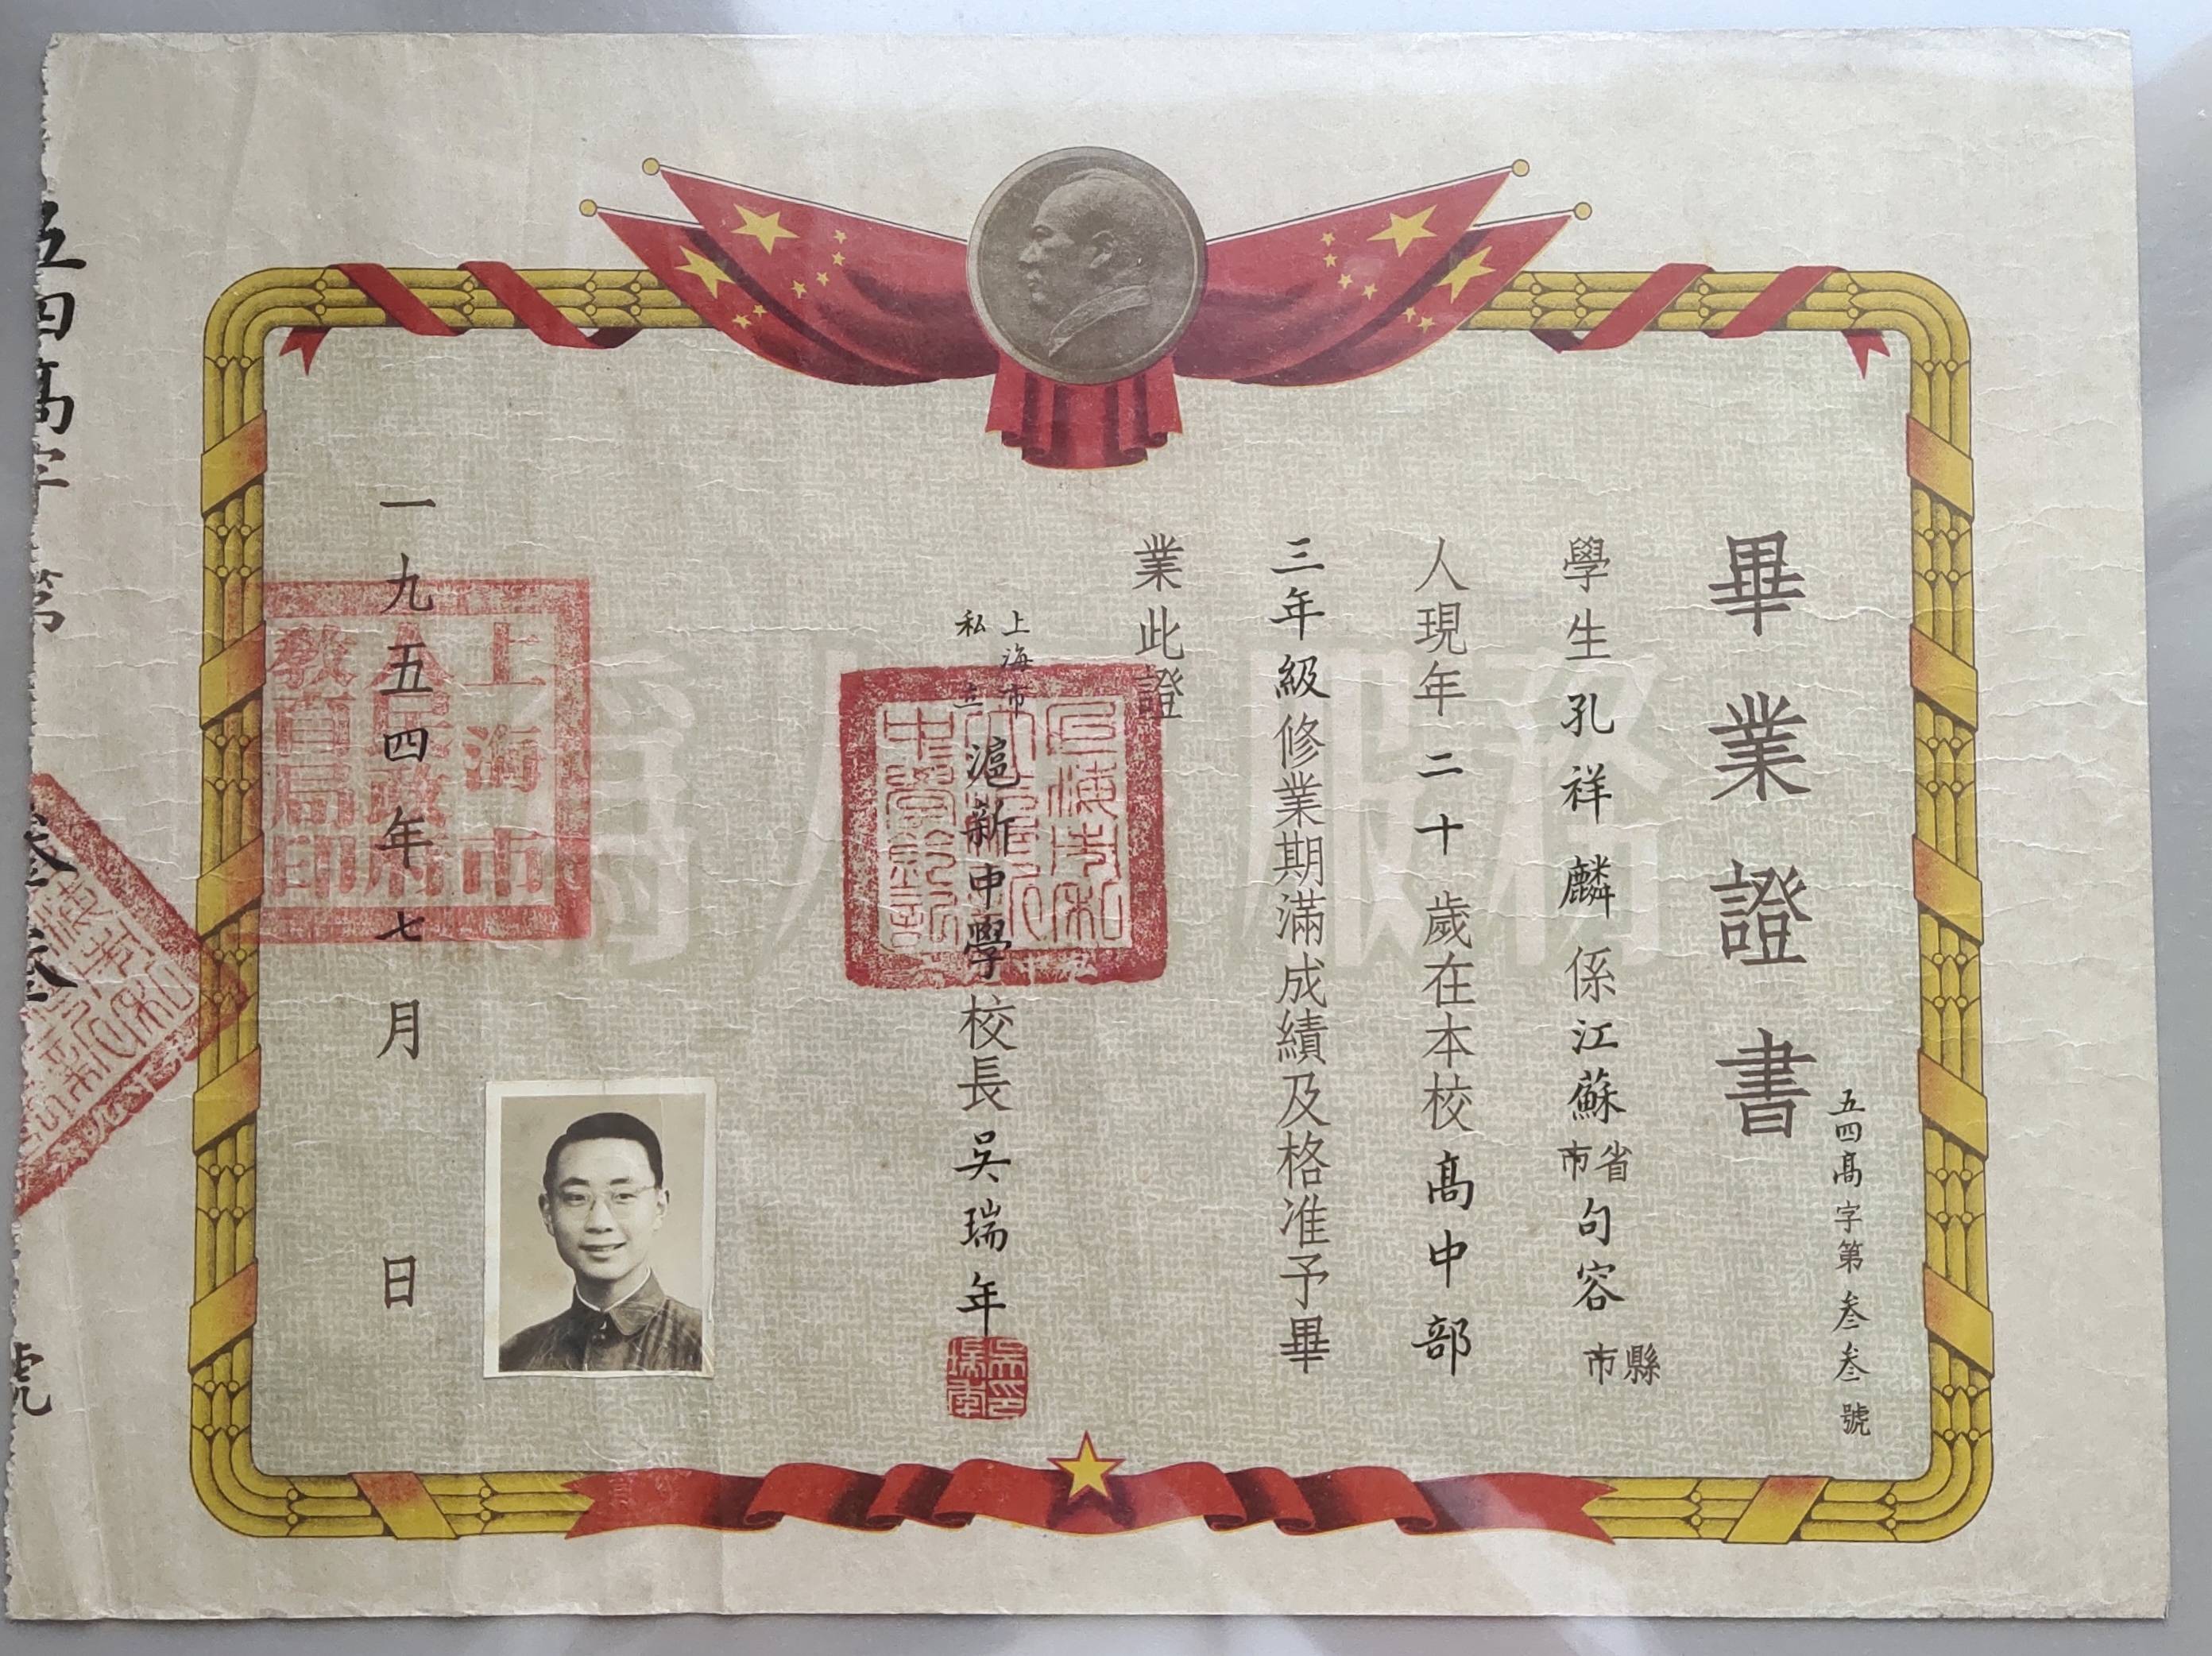 畢業證書
五四高字第叁叁號
學生孔祥麟係江蘇省市句容縣市
人現年二十歲在本校高中部
三年級修業期滿成績及格准予畢
業此證
上海市
私立
滬新中學校長吳瑞年
吳瑞年印
一九五四年七月日
上海市
人民政府
教育局印
為人民服務
五四高字第叁叁號